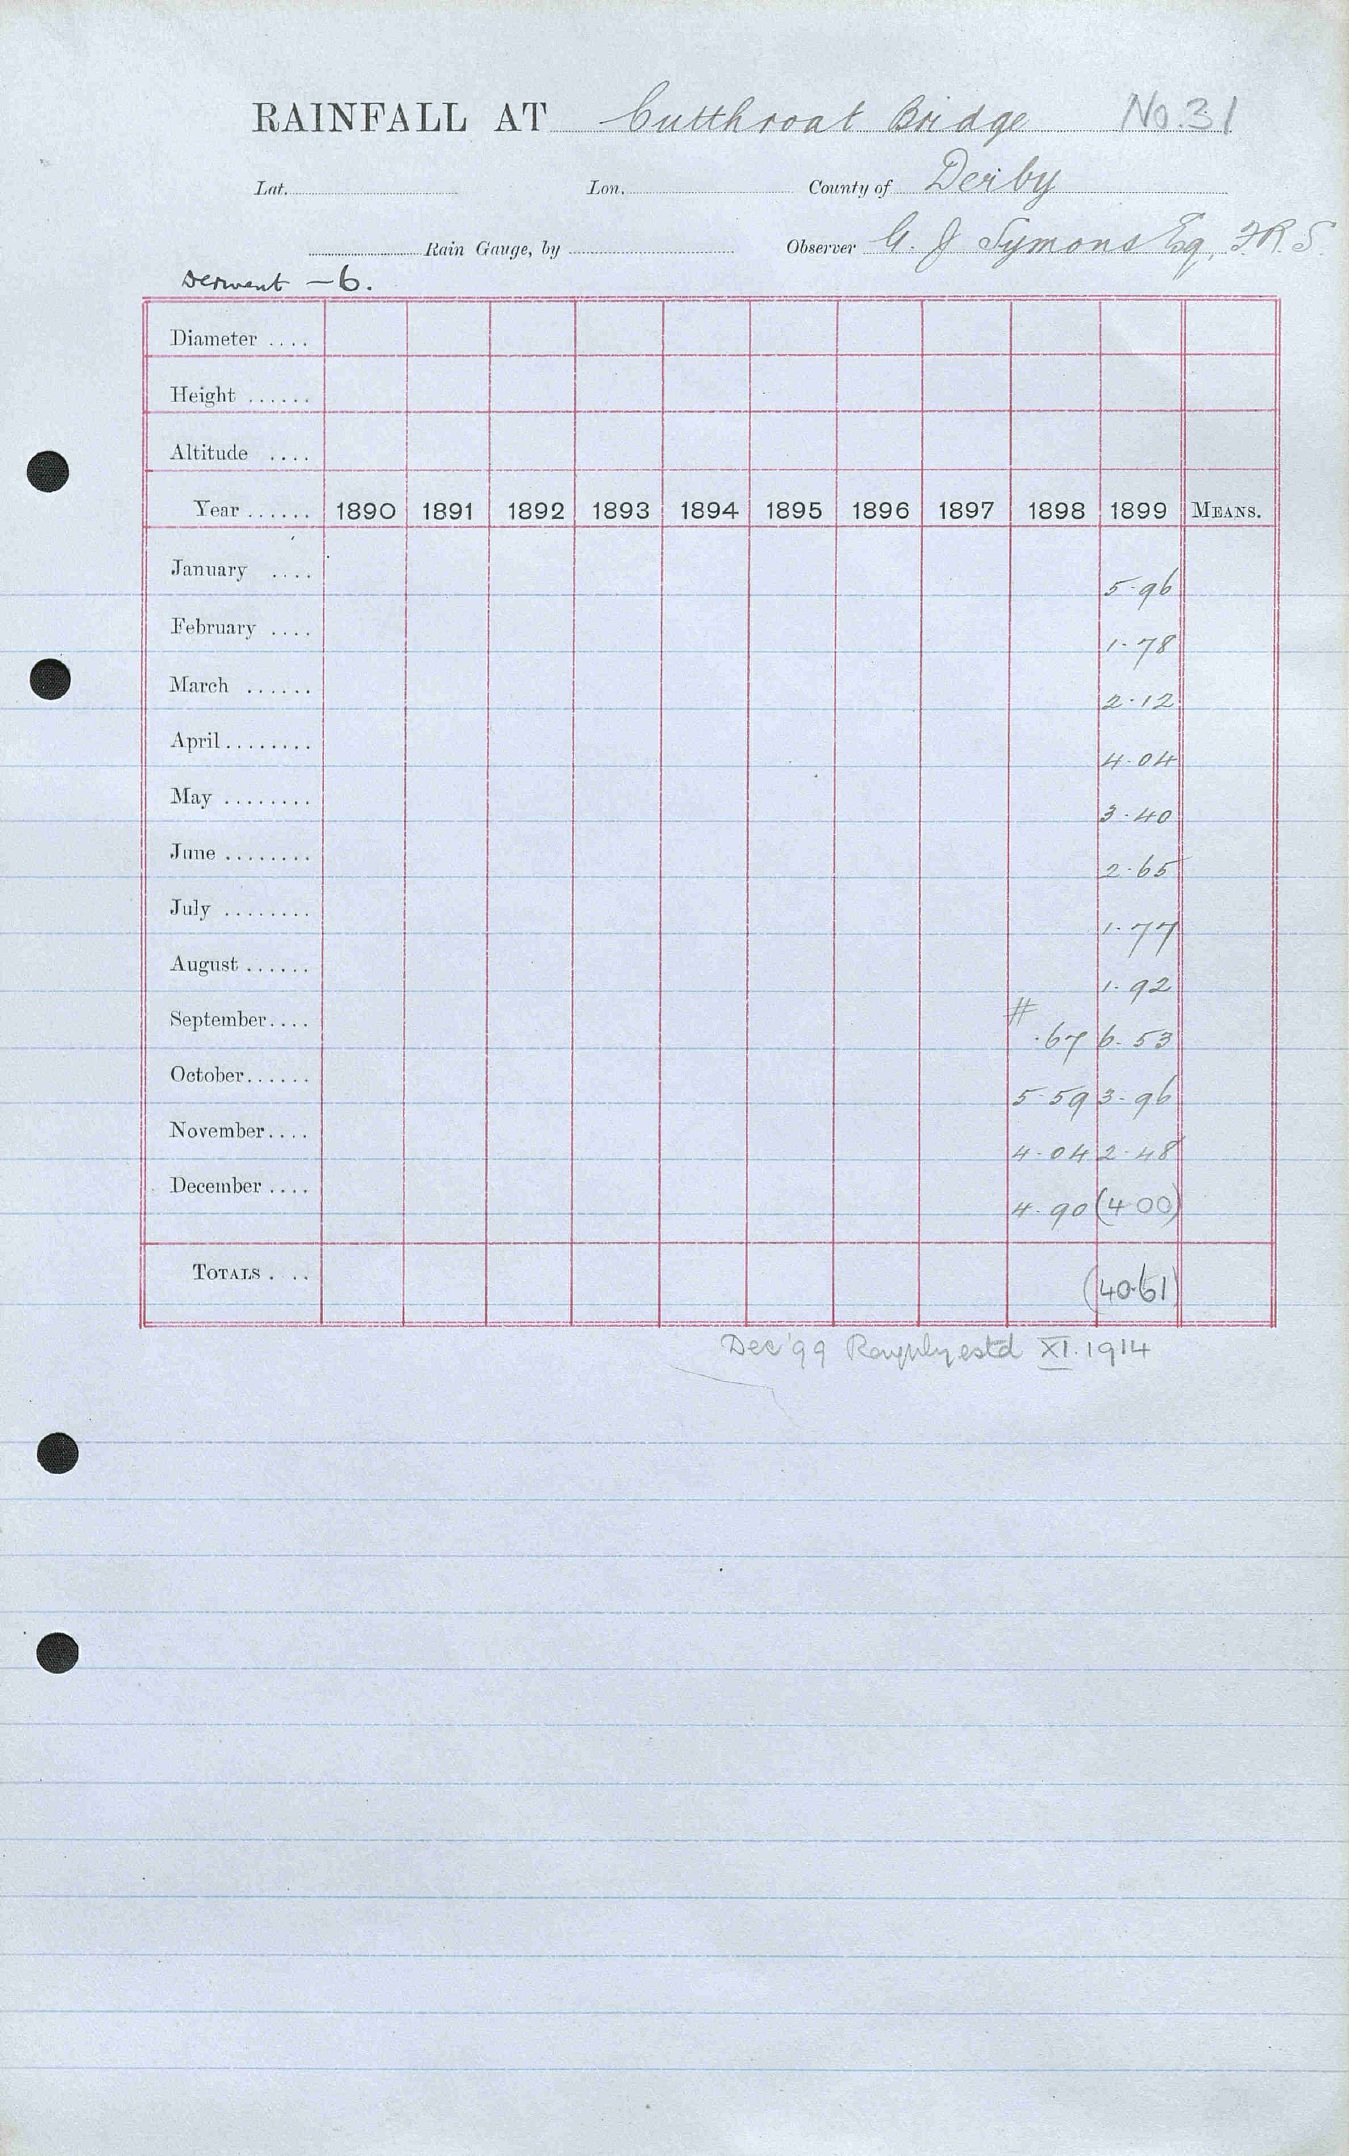 RAINFALL AT Cutthroat Bridge No. 31
Lat. Lon. County of Derby
Rain Gauge, by Observer G. J Symons Esq, F.R.S.
Derwent - 6.
Diameter ....
Height ......
Altitude ....
Year ...... 1890 1891 1892 1893 1894 1895 1896 1897 1898 1899 MEANS.
January .... 5.96
February .... 1.78
March ...... 2.12
April........ 4.04
May ........ 3.40
June ........ 2.65
July ........ 1.77
August ...... 1.92
September.... # .67 6.53
October...... 5.59 3.96
November.... 4.04 2.48
December .... 4.90 (4 00)
TOTALS . .. (40.61)
Dec '99 Roughly estd XI. 1914